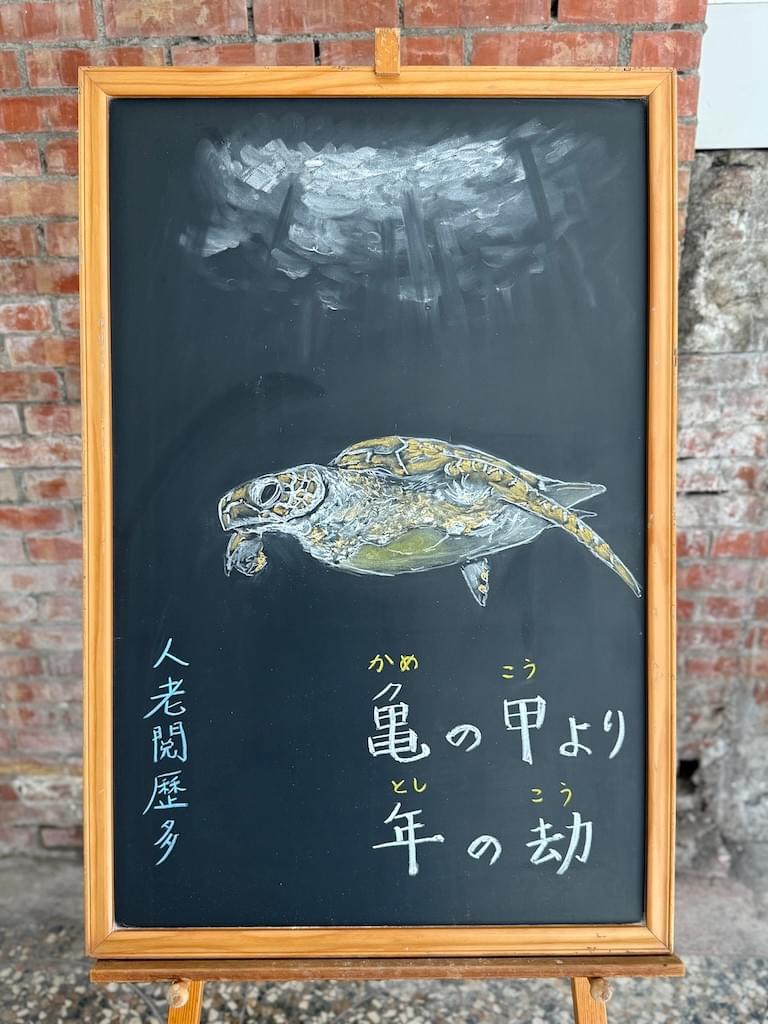 かめ こう
亀の甲より
とし こう
年の劫
人老閲歴多